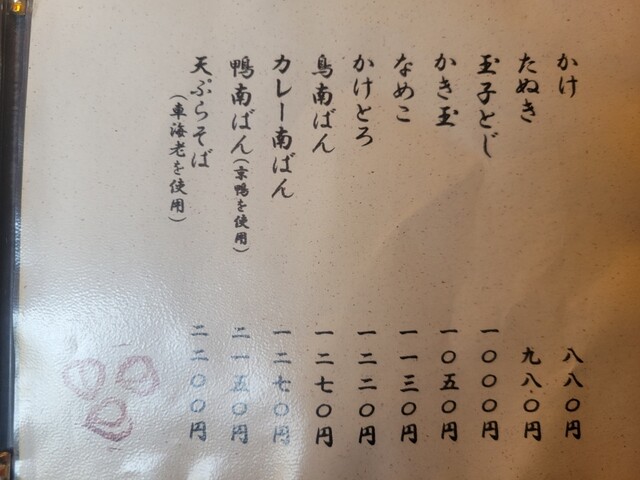 かけ 八八〇円
たぬき 九八〇円
玉子とじ 一〇〇〇円
かき玉 一〇五〇円
なめこ 一一三〇円
かけとろ 一二二〇円
鳥南ばん 一二七〇円
カレー南ばん 一二七〇円
鴨南ばん(京鴨を使用) 二一五〇円
天ぷらそば(車海老を使用) 二二〇〇円